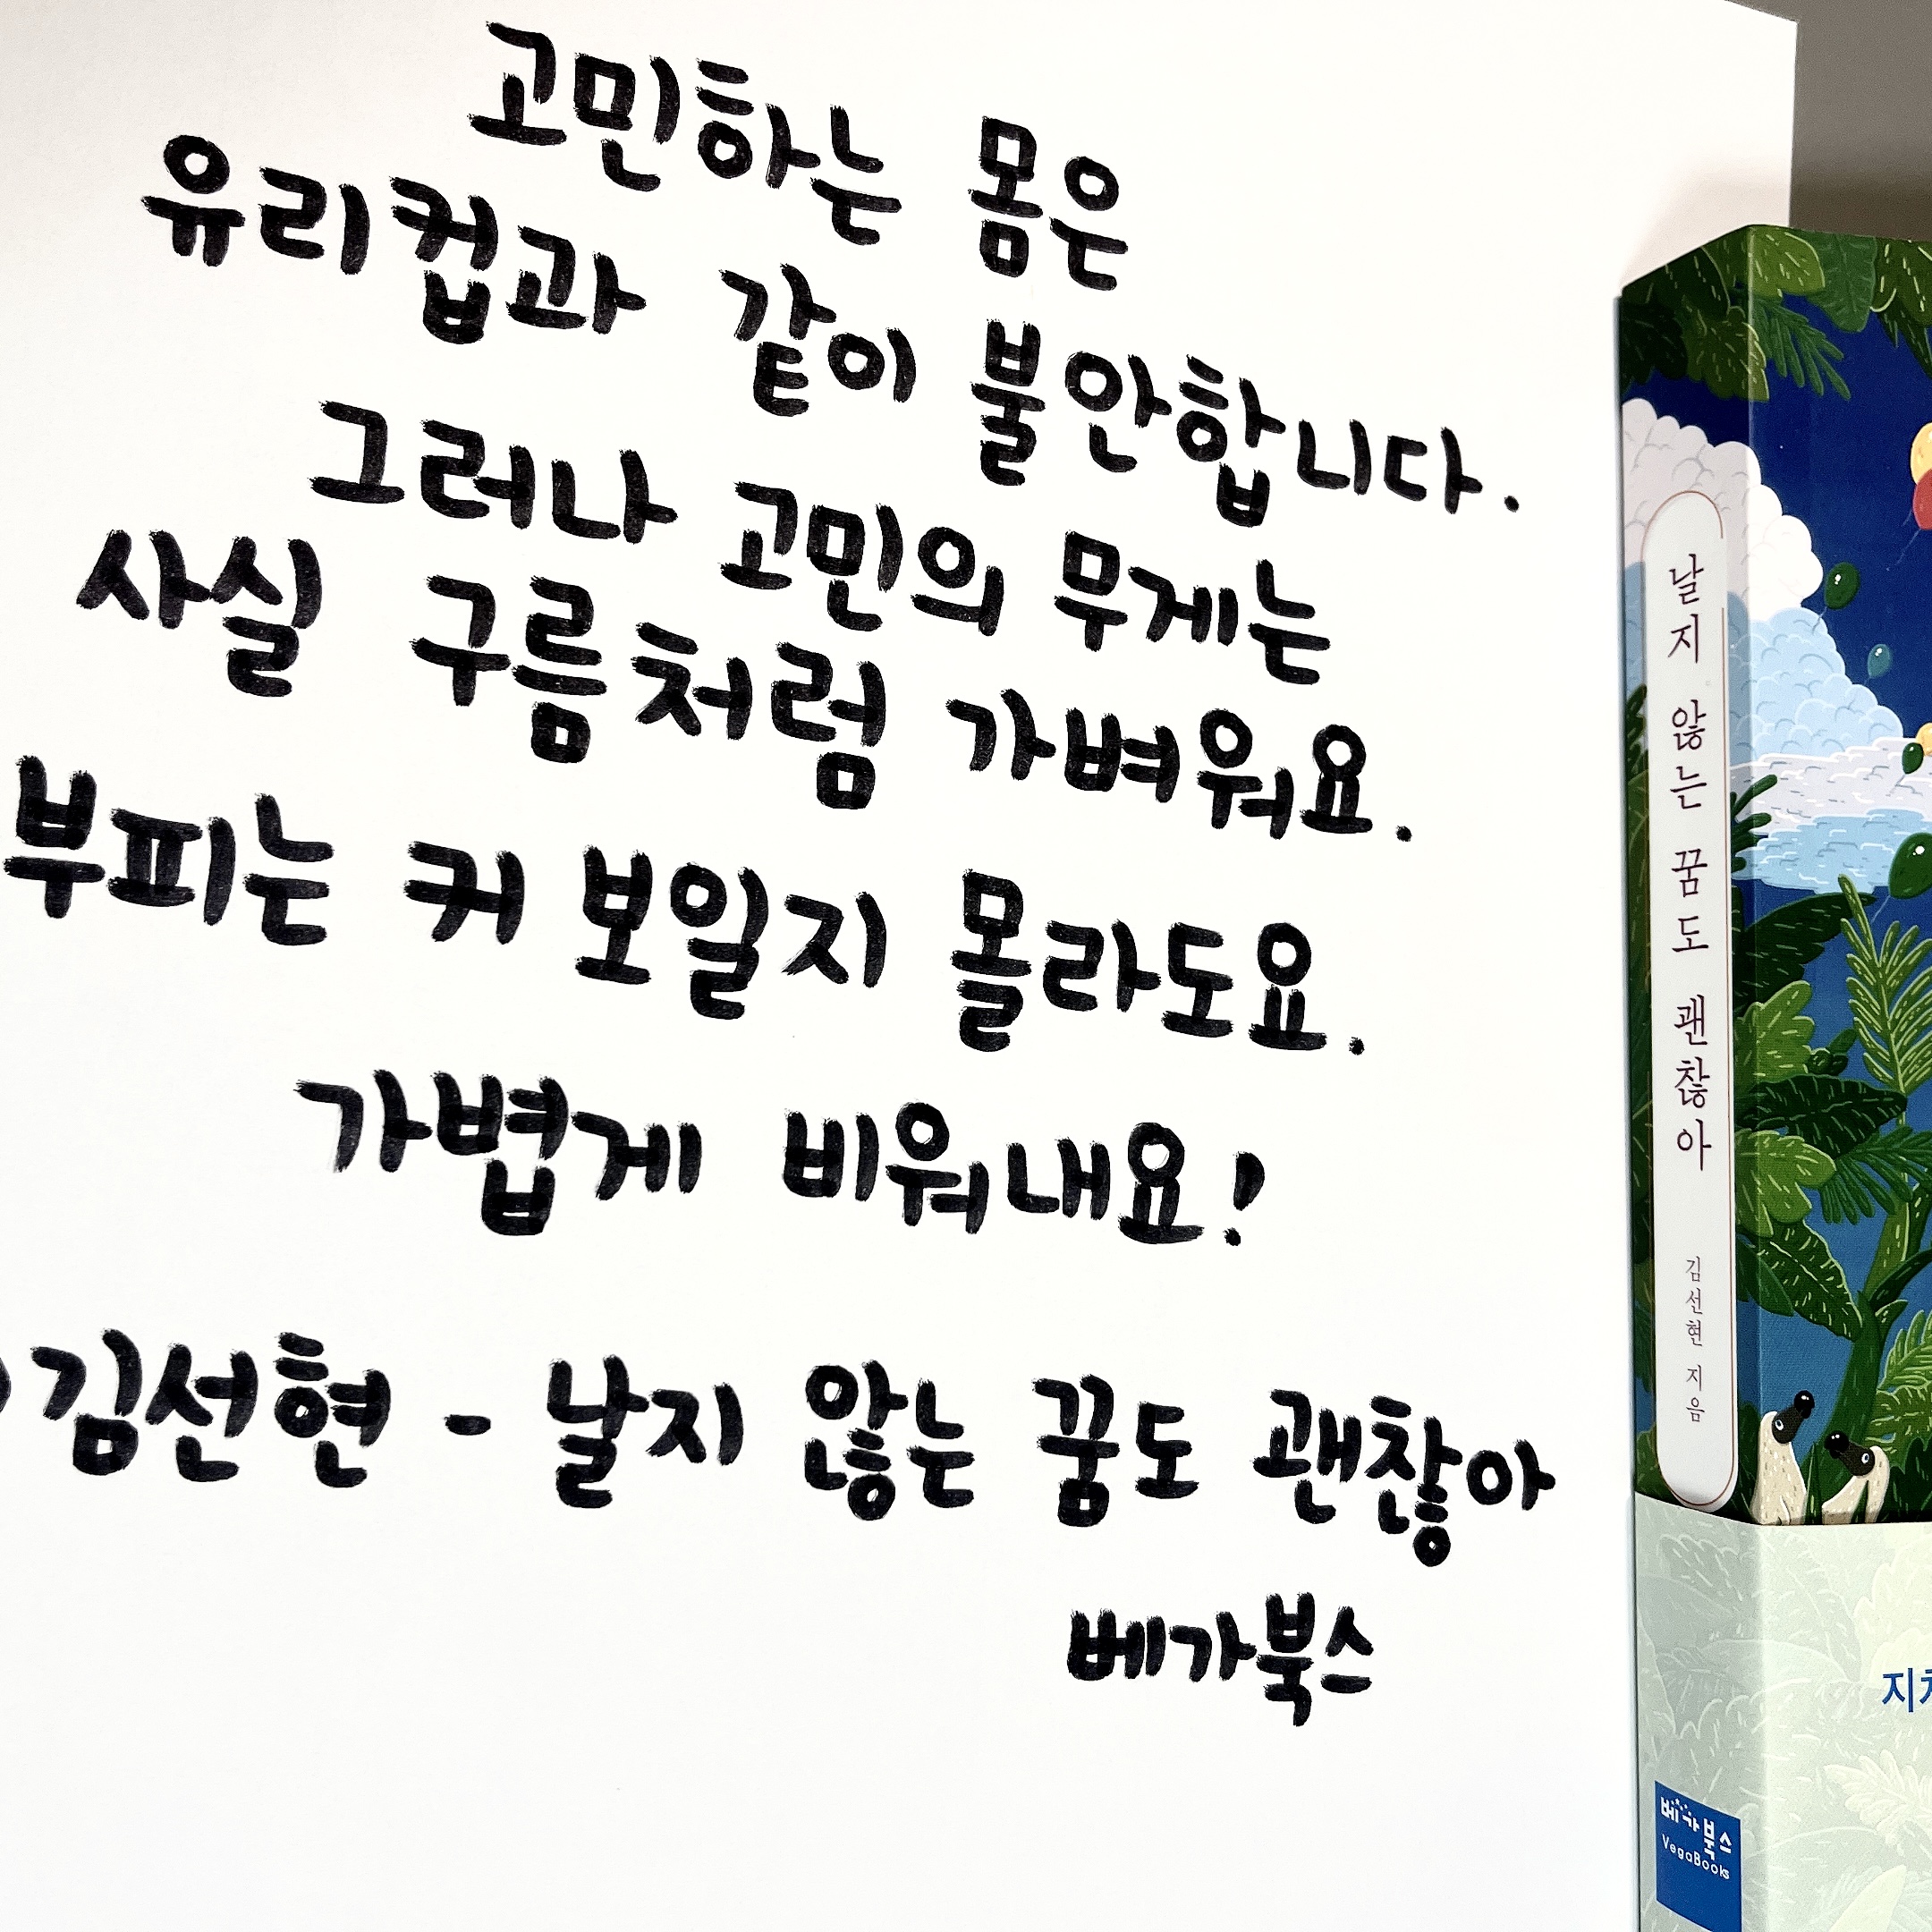 고민하는 몸은
유리컵과 같이 불안합니다.
그러나 고민의 무게는
사실 구름처럼 가벼워요.
부피는 커 보일지 몰라도요.
가볍게 비워내요!
김선현 - 날지 않는 꿈도 괜찮아
베가북스
날지 않는 꿈도 괜찮아
김선현 지음
베가북스
VegaBooks